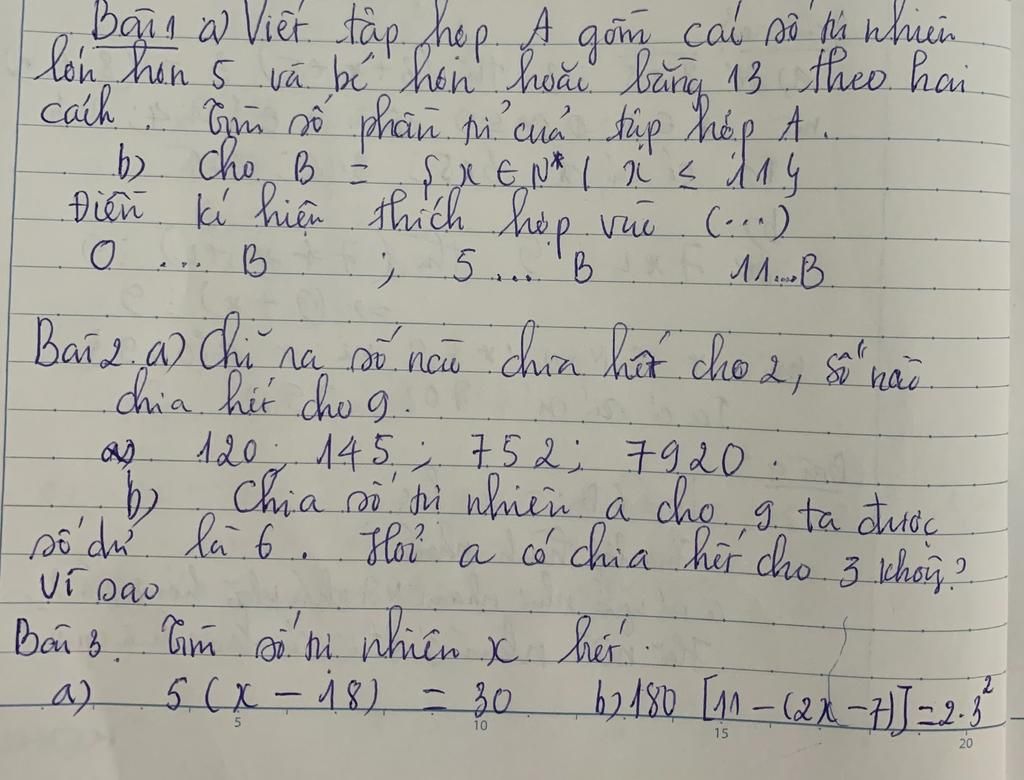 Bài 1 a) Viết tập hợp A gồm các số tự nhiên
lớn hơn 5 và bé hơn hoặc bằng 13 theo hai
cách. Tìm số phần tử của tập hợp A.
b) Cho B = { x ∈ N* | x ≤ 11 }
Điền kí hiệu thích hợp vào (...)
0 ... B ; 5 .... B 11....B
Bài 2. a) Chỉ ra số nào chia hết cho 2, số nào
chia hết cho 9.
a) 120 ; 145 ; 752 ; 7920.
b) Chia số tự nhiên a cho 9 ta được
số dư là 6. Hỏi a có chia hết cho 3 không?
Vì sao
Bài 3. Tìm số tự nhiên x biết.
a) 5 (x – 18) = 30 b) 180 [11 – (2x – 7)] = 2.3²
5 10 15 20